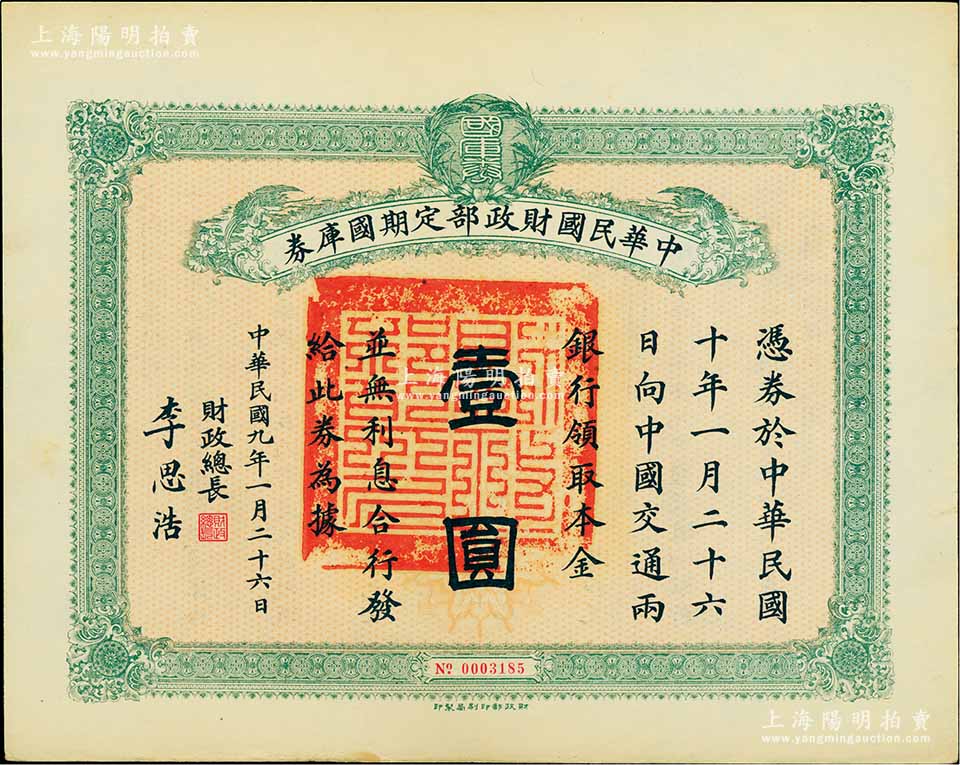 上海陽明拍賣
www.yangmingauction.com
國庫券
中華民國財政部定期國庫券
憑券於中華民國
十年一月二十六
日向中國交通兩
銀行領取本金
壹圓
並無利息合行發
給此券為據
中華民國九年一月二十六日
財政總長
李思浩
No. 0003185
財政部印刷局製印
上海陽明拍賣
www.yangmingauction.com
上海陽明拍賣
www.yangmingauction.com